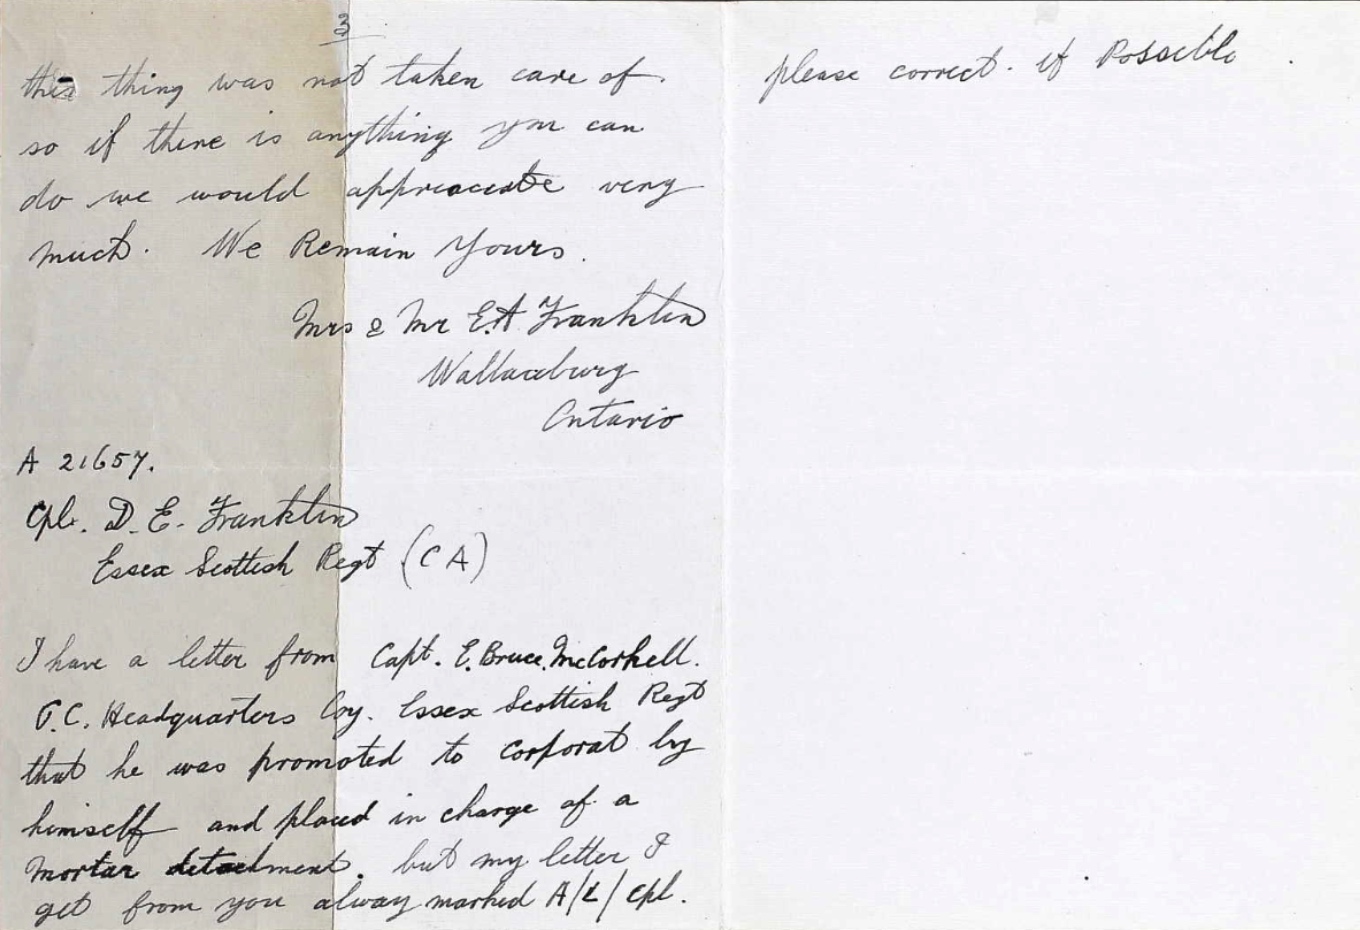 3
this thing was not taken care of.
so if there is anything you can
do we would appreaceate very
much. We Remain Yours.
Mrs & Mr E.A. Franklin
Wallaceburg
Ontario
A 21657.
Cpl. D. E. Franklin
Essex Scottish Regt (CA)
I have a letter from Capt. E. Bruce. McCorkell.
O.C. Headquarters Coy. Essex Scottish Regt
that he was promoted to Corporal by
himself and placed in charge of a
Mortar detachment. but my letter I
get from you alway marked A/L/Cpl.
please correct. if Possible.